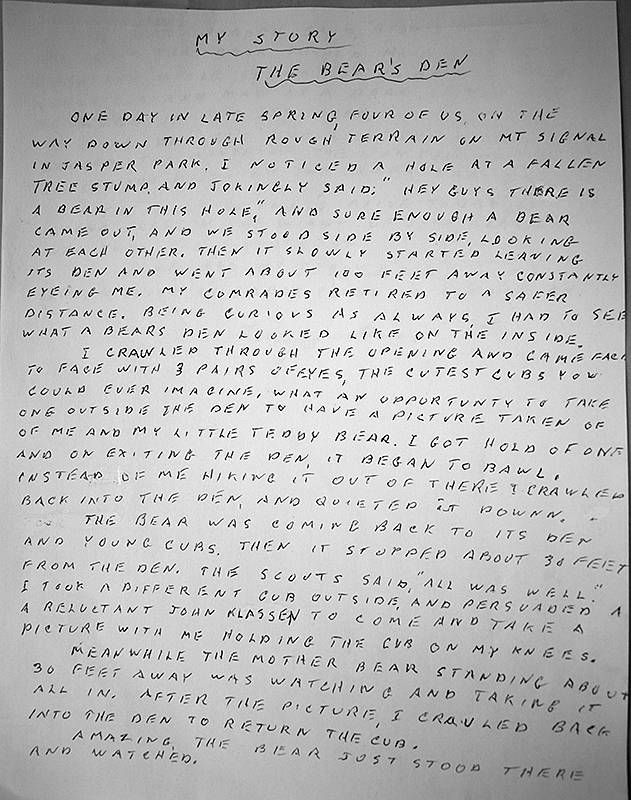 MY STORY
THE BEAR'S DEN
ONE DAY IN LATE SPRING, FOUR OF US, ON THE
WAY DOWN THROUGH ROUGH TERRAIN ON MT SIGNAL
IN JASPER PARK. I NOTICED A HOLE AT A FALLEN
TREE STUMP, AND JOKINGLY SAID; "HEY GUYS THERE IS
A BEAR IN THIS HOLE," AND SURE ENOUGH A BEAR
CAME OUT, AND WE STOOD SIDE BY SIDE, LOOKING
AT EACH OTHER. THEN IT SLOWLY STARTED LEAVING
ITS DEN AND WENT ABOUT 100 FEET AWAY CONSTANTLY
EYEING ME. MY COMRADES RETIRED TO A SAFER
DISTANCE. BEING CURIOUS AS ALWAYS, I HAD TO SEE
WHAT A BEARS DEN LOOKED LIKE ON THE INSIDE.
I CRAWLED THROUGH THE OPENING AND CAME FACE
TO FACE WITH 3 PAIRS OF EYES, THE CUTEST CUBS YOU
COULD EVER IMAGINE, WHAT AN OPPORTUNTY TO TAKE
ONE OUTSIDE THE DEN TO HAVE A PICTURE TAKEN OF
OF ME AND MY LITTLE TEDDY BEAR. I GOT HOLD OF ONE
AND ON EXITING THE DEN, IT BEGAN TO BAWL.
INSTEAD OF ME HIKING IT OUT OF THERE I CRAWLED
BACK INTO THE DEN, AND QUIETED IT DOWNN.
THE BEAR WAS COMING BACK TO ITS DEN
AND YOUNG CUBS, THEN IT STOPPED ABOUT 30 FEET
FROM THE DEN. THE SCOUTS SAID, "ALL WAS WELL."
I TOOK A DIFFERENT CUB OUTSIDE, AND PERSUADED A
A RELUCTANT JOHN KLASSEN TO COME AND TAKE A
PICTURE WITH ME HOLDING THE CUB ON MY KNEES.
MEANWHILE THE MOTHER BEAR STANDING ABOUT
30 FEET AWAY WAS WATCHING AND TAKING IT
ALL IN. AFTER THE PICTURE, I CRAWLED BACK
INTO THE DEN TO RETURN THE CUB.
AMAZING, THE BEAR JUST STOOD THERE
AND WATCHED.